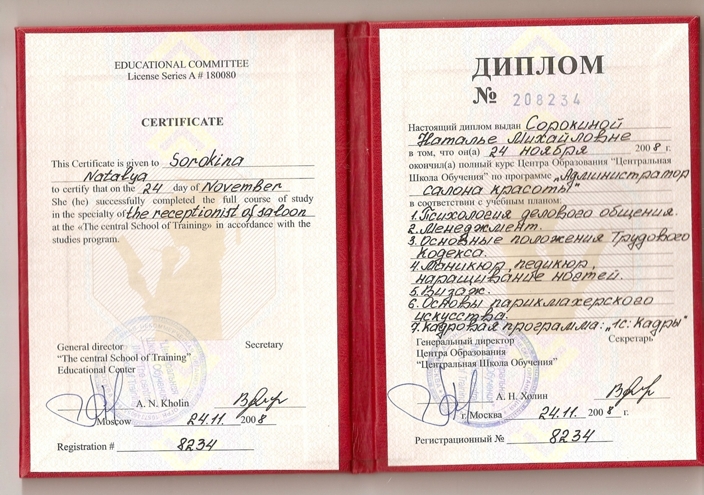 EDUCATIONAL COMMITTEE
License Series A # 180080
CERTIFICATE
This Certificate is given to Sorokina
Natalya
to certify that on the 24 day of November
She (he) successfully completed the full course of study
in the specialty of the receptionist of saloon
at the «The central School of Training» in accordance with the
studies program.
General director Secretary
"The central School of Training"
Educational Center
A. N. Kholin
Moscow 24.11. 2008
Registration # 8234
ДИПЛОМ
№ 208234
Настоящий диплом выдан Сорокиной
Наталье Михайловне
в том, что он(а) 24 ноября 2008 г.
окончил(а) полный курс Центра Образования "Центральная
Школа Обучения" по программе „Администратор
салона красоты"
в соответствии с учебным планом:
1. Психология делового общения.
2. Менеджмент.
3. Основные положения Трудового
Кодекса.
4. Маникюр, педикюр,
наращивание ногтей.
5. Визаж.
6. Основы парикмахерского
искусства.
7. Кадровая программа: „1с: Кадры"
Генеральный директор Секретарь
Центра Образования
"Центральная Школа Обучения"
А. Н. Холин
г. Москва 24.11. 2008 г.
Регистрационный № 8234